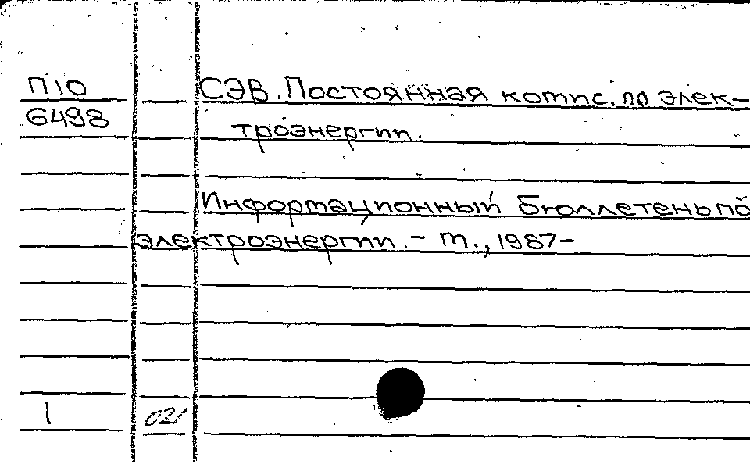 П10
6498
СЭВ. Постоянная комис. по элек-
троэнергии.
Информационный бюллетень по
электроэнергии. - М., 1967-
1
021